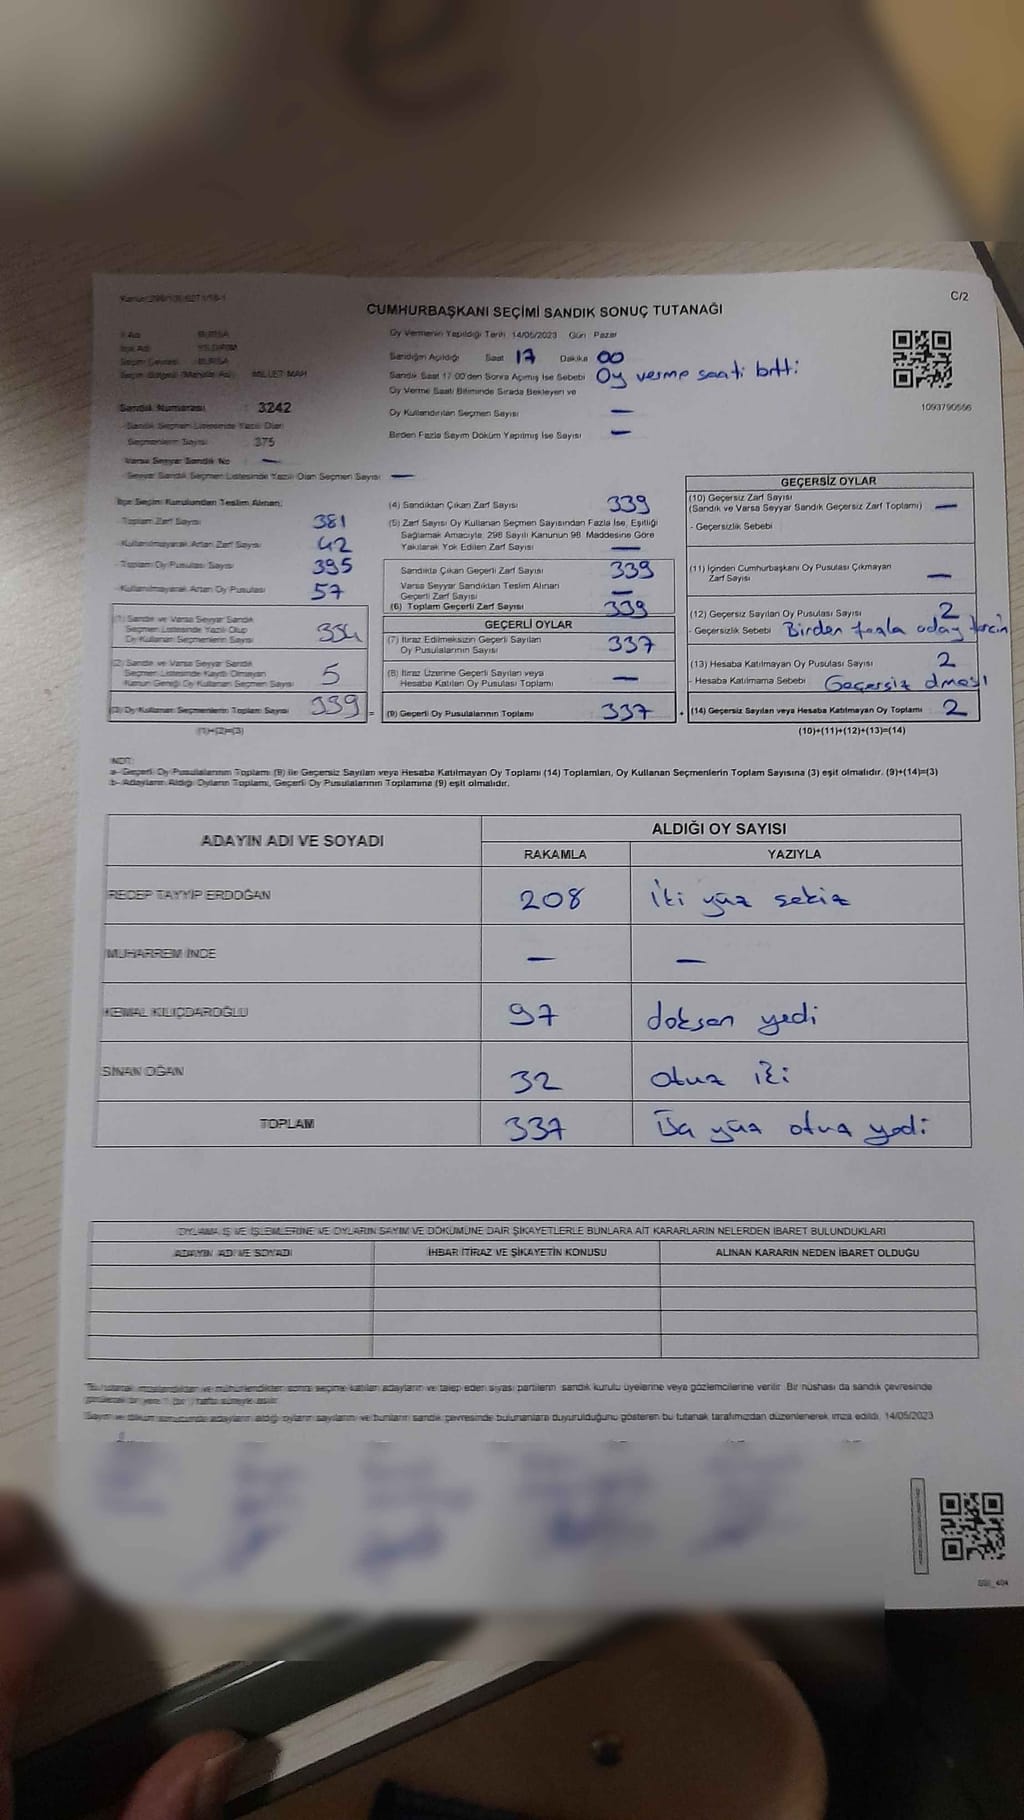 Kanun:298/105,6271/18-1
C/2
CUMHURBAŞKANI SEÇİMİ SANDIK SONUÇ TUTANAĞI
İl Adı BURSA
İlçe Adı YILDIRIM
Seçim Çevresi BURSA
Seçim Bölgesi (Mahalle Adı) MİLLET MAH
Sandık Numarası : 3242
Sandık Seçmen Listesinde Yazılı Olan
Seçmenlerin Sayısı : 375
Varsa Seyyar Sandık No : —
Seyyar Sandık Seçmen Listesinde Yazılı Olan Seçmen Sayısı : —
Oy Vermenin Yapıldığı Tarih 14/05/2023 Gün Pazar
Sandığın Açıldığı Saat 17 Dakika 00
Sandık Saat 17:00'den Sonra Açımış İse Sebebi Oy verme saati bitti
Oy Verme Saati Bitiminde Sırada Bekleyen ve
Oy Kullandırılan Seçmen Sayısı —
Birden Fazla Sayım Döküm Yapılmış İse Sayısı —
1093790556
İlçe Seçim Kurulundan Teslim Alınan;
- Toplam Zarf Sayısı 381
- Kullanılmayarak Artan Zarf Sayısı 42
- Toplam Oy Pusulası Sayısı 395
- Kullanılmayarak Artan Oy Pusulası 57
(1) Sandık ve Varsa Seyyar Sandık
Seçmen Listesinde Yazılı Olup
Oy Kullanan Seçmenlerin Sayısı 334
(2) Sandık ve Varsa Seyyar Sandık
Seçmen Listesinde Kayıtlı Olmayan
Kanun Gereği Oy Kullanan Seçmen Sayısı 5
(3) Oy Kullanan Seçmenlerin Toplam Sayısı 339 =
(1)+(2)=(3)
(4) Sandıktan Çıkan Zarf Sayısı 339
(5) Zarf Sayısı Oy Kullanan Seçmen Sayısından Fazla İse, Eşitliği
Sağlamak Amacıyla, 298 Sayılı Kanunun 98. Maddesine Göre
Yakılarak Yok Edilen Zarf Sayısı —
Sandıkta Çıkan Geçerli Zarf Sayısı 339
Varsa Seyyar Sandıktan Teslim Alınan
Geçerli Zarf Sayısı —
(6) Toplam Geçerli Zarf Sayısı 339
GEÇERLİ OYLAR
(7) İtiraz Edilmeksizin Geçerli Sayılan
Oy Pusulalarının Sayısı 337
(8) İtiraz Üzerine Geçerli Sayılan veya
Hesaba Katılan Oy Pusulası Toplamı —
(9) Geçerli Oy Pusulalarının Toplamı 337 +
GEÇERSİZ OYLAR
(10) Geçersiz Zarf Sayısı
(Sandık ve Varsa Seyyar Sandık Geçersiz Zarf Toplamı) —
- Geçersizlik Sebebi
(11) İçinden Cumhurbaşkanı Oy Pusulası Çıkmayan
Zarf Sayısı —
(12) Geçersiz Sayılan Oy Pusulası Sayısı 2
- Geçersizlik Sebebi Birden fazla aday tercih
(13) Hesaba Katılmayan Oy Pusulası Sayısı 2
- Hesaba Katılmama Sebebi Geçersiz olması
(14) Geçersiz Sayılan veya Hesaba Katılmayan Oy Toplamı 2
(10)+(11)+(12)+(13)=(14)
NOT:
a- Geçerli Oy Pusulalarının Toplamı (9) ile Geçersiz Sayılan veya Hesaba Katılmayan Oy Toplamı (14) Toplamları, Oy Kullanan Seçmenlerin Toplam Sayısına (3) eşit olmalıdır. (9)+(14)=(3)
b- Adayların Aldığı Oyların Toplamı, Geçerli Oy Pusulalarının Toplamına (9) eşit olmalıdır.
ADAYIN ADI VE SOYADI
ALDIĞI OY SAYISI
RAKAMLA YAZIYLA
RECEP TAYYİP ERDOĞAN 208 İki yüz sekiz
MUHARREM İNCE — —
KEMAL KILIÇDAROĞLU 97 doksan yedi
SİNAN OĞAN 32 otuz iki
TOPLAM 337 Üç yüz otuz yedi
OYLAMA İŞ VE İŞLEMLERİNE VE OYLARIN SAYIM VE DÖKÜMÜNE DAİR ŞİKAYETLERLE BUNLARA AİT KARARLARIN NELERDEN İBARET BULUNDUKLARI
ADAYIN ADI VE SOYADI İHBAR İTİRAZ VE ŞİKAYETİN KONUSU ALINAN KARARIN NEDEN İBARET OLDUĞU
"Bu tutanak imzalandıktan ve mühürlendikten sonra seçime katılan adayların ve talep eden siyasi partilerin sandık kurulu üyelerine veya gözlemcilerine verilir. Bir nüshası da sandık çevresinde
görülecek bir yere 1 (bir) hafta süreyle asılır.
Sayım ve döküm sonucunda adayların aldığı oyların sayılarını ve bunların sandık çevresinde bulunanlara duyurulduğunu gösteren bu tutanak tarafımızdan düzenlenerek imza edildi. 14/05/2023